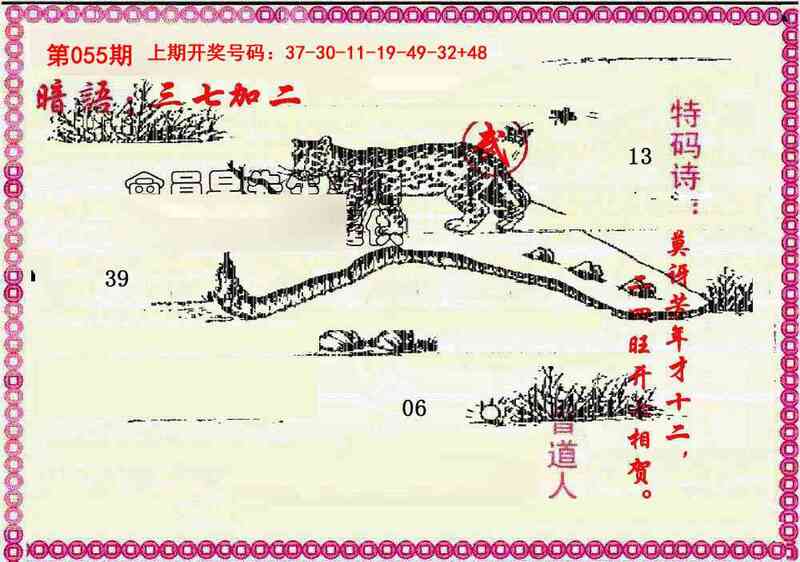 第055期 上期开奖号码：37-30-11-19-49-32+48
暗語：三七加二
特码诗：
莫讶芳年才十二，
二四旺开 相贺。
13
39
06
道人